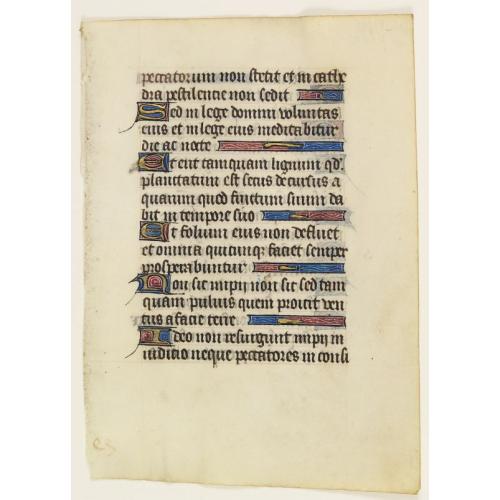 peccatorum non stetit et in cathe
dra pestilentie non sedit
Sed in lege domini voluntas
eius et in lege eius meditabitur
die ac nocte
Et erit tamquam lignum qd
plantatum est secus decursus a
quarum quod fructum suum da
bit in tempore suo
Et folium eius non defluet
et omnia quecunq faciet semper
prosperabuntur
Non sic impii non sic sed tam
quam puluis quem proicit ven
tus a facie terre
Ideo non resurgunt impii in
iudicio neque peccatores in consi